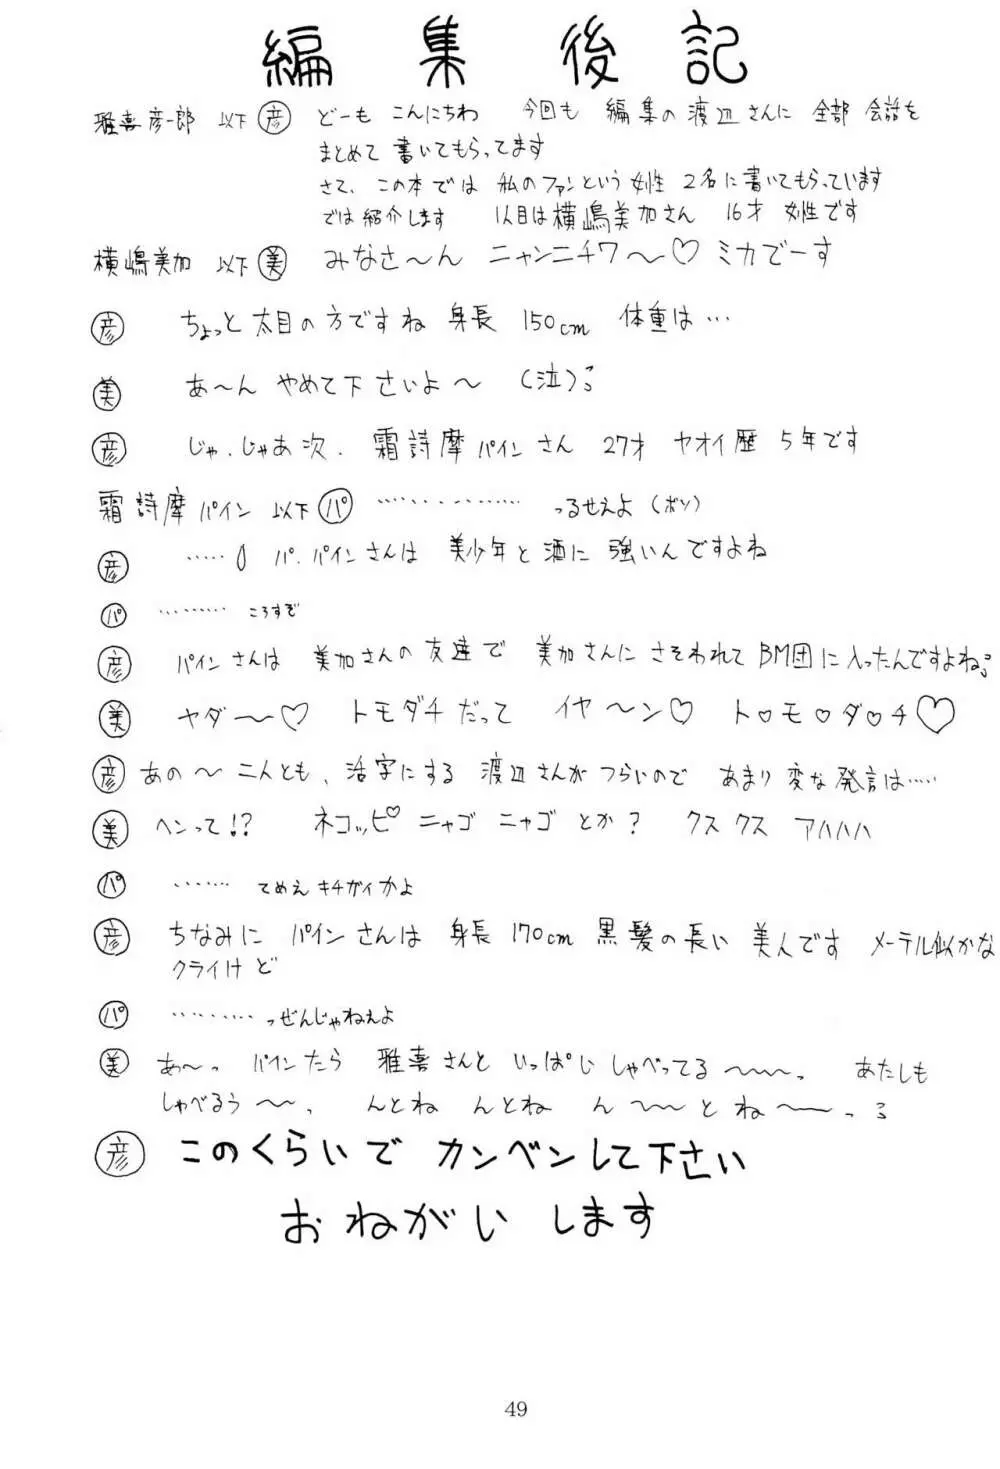 編集後記
雅喜彦一郎 以下 彦 どーも こんにちわ 今回も 編集の渡辺さんに 全部 会話を
まとめて 書いてもらってます
さて、この本では 私のファンという 女性 2名に書いてもらっています
では紹介します 1人目は横嶋美加さん 16才 女性です
横嶋美加 以下 美 みなさ〜ん ニャンニチワ〜♡ ミカでーす
彦 ちょっと太目の方ですね 身長 150cm 体重は…
美 あ〜ん やめて下さいよ〜 (泣)
彦 じゃ、じゃあ次、霜詩摩パインさん 27才 ヤオイ歴 5年です
霜詩摩パイン 以下 パ ……………… っるせえよ(ボソ)
彦 ‥‥‥ パ、パインさんは 美少年と酒に 強いんですよね
パ ……… ころすぞ
彦 パインさんは 美加さんの友達で 美加さんにさそわれてBM団に入ったんですよね
美 ヤダ〜〜♡ トモダチだって イヤ〜ン♡ ト♡モ♡ダ♡チ♡
彦 あの〜 二人とも、活字にする 渡辺さんがつらいので あまり変な発言は……
美 ヘンって!? ネコッピ♡ ニャゴ ニャゴ とか? クスクス アハハハ
パ ……… てめえキチガイかよ
彦 ちなみに パインさんは 身長170cm 黒髪の長い 美人です メーテル似かな
クライけど
パ ………… っぜんじゃねえよ
美 あ〜っ パインたら 雅喜さんと いっぱい しゃべってる〜〜〜っ あたしも
しゃべるぅ〜〜っ んとね んとね ん〜〜とね〜〜っ
彦 このくらいで カンベンして下さい
おねがい します
49